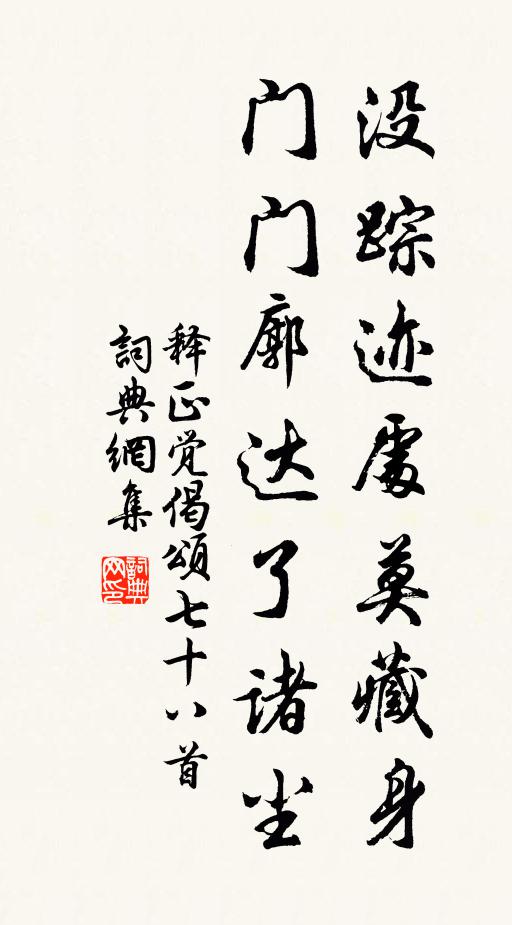 没踪迹處莫藏身
门门廓达了诸尘
释正觉偈颂七十八首
詞典網集
詞典网印